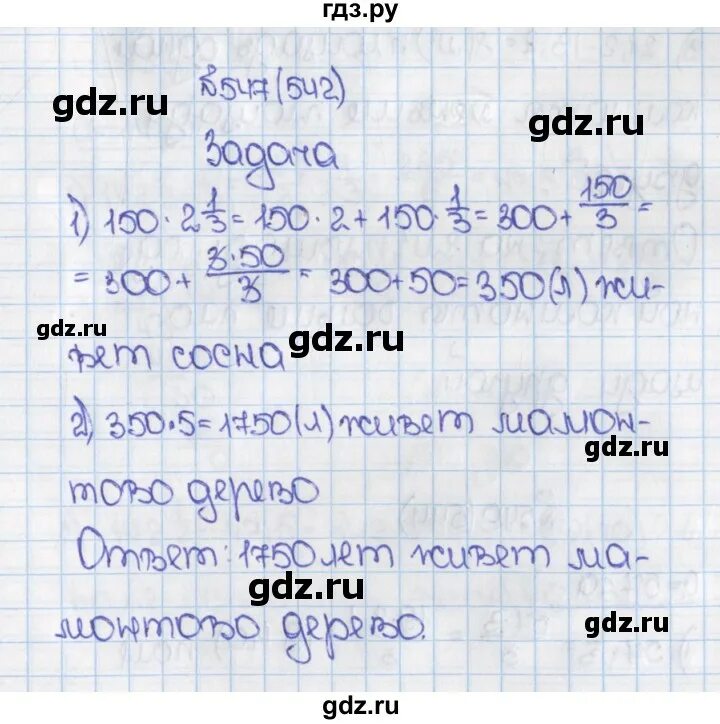 гдз.ру
№547(542)
gdz.ru
gdz.ru
Задача
1) 150 · 2 1/3 = 150 · 2 + 150 · 1/3 = 300 + 150/3 =
= 300 + 3·50/3 = 300+50=350(л) жи-
gdz.ru
gdz.ru
вет сосна
2) 350·5=1750(л) живет мамон-
gdz.ru
тово дерево
Ответ: 1750 лет живет ма-
gdz.ru
монтово дерево.
gdz.ru
gdz.ru